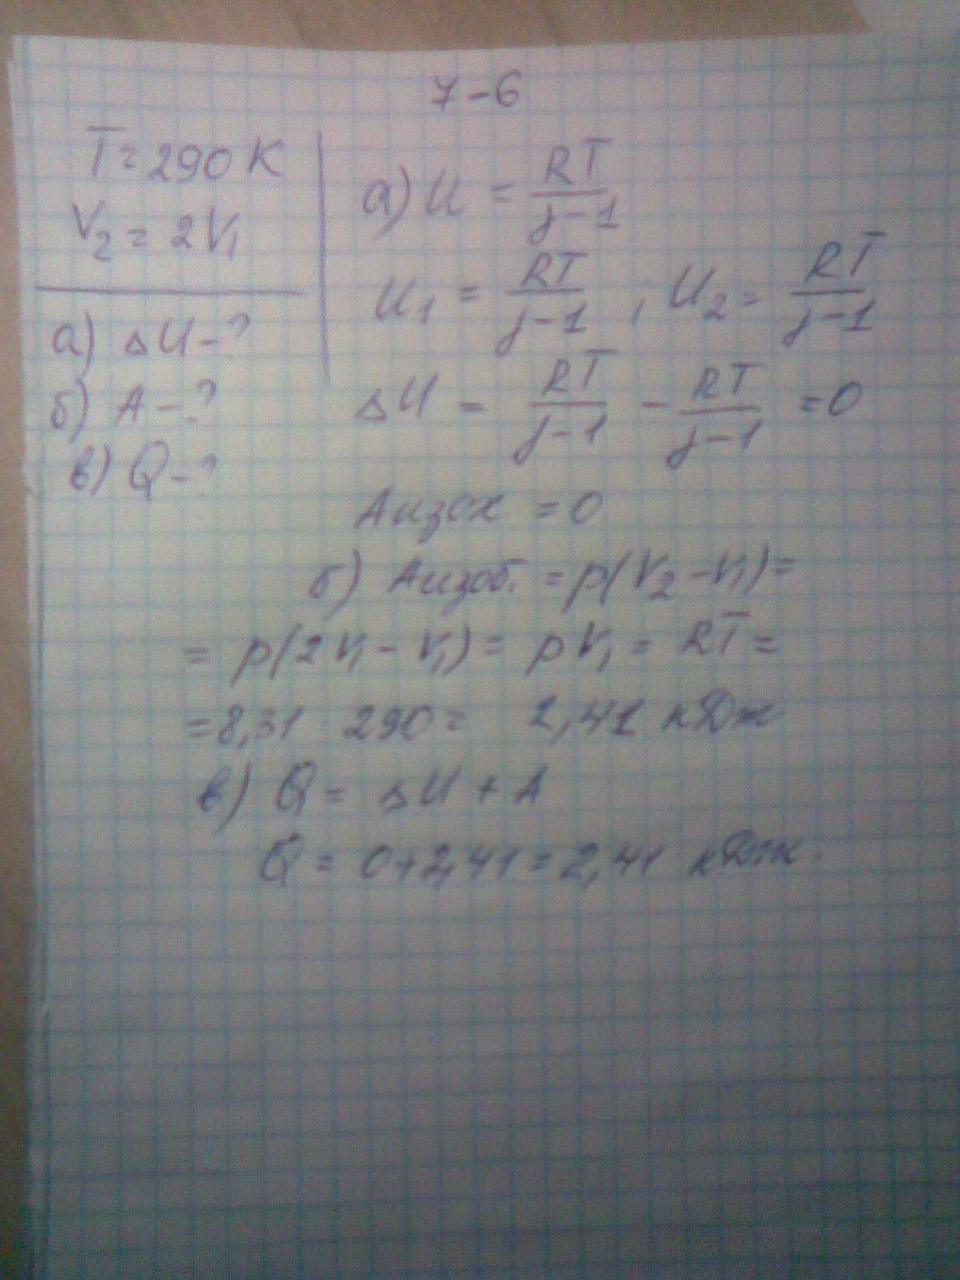 7-6
T=290 K
V₂=2V₁
а) ΔU-?
б) A-?
в) Q-?
а) U = RT/(γ-1)
U₁ = RT/(γ-1) , U₂ = RT/(γ-1)
ΔU = RT/(γ-1) - RT/(γ-1) =0
Aизох =0
б) Aизоб. =p(V₂-V₁)=
= p(2V₁-V₁)= pV₁= RT=
=8,31 290= 2,41 кДж
в) Q= ΔU+A
Q = 0+2,41=2,41 кДж.